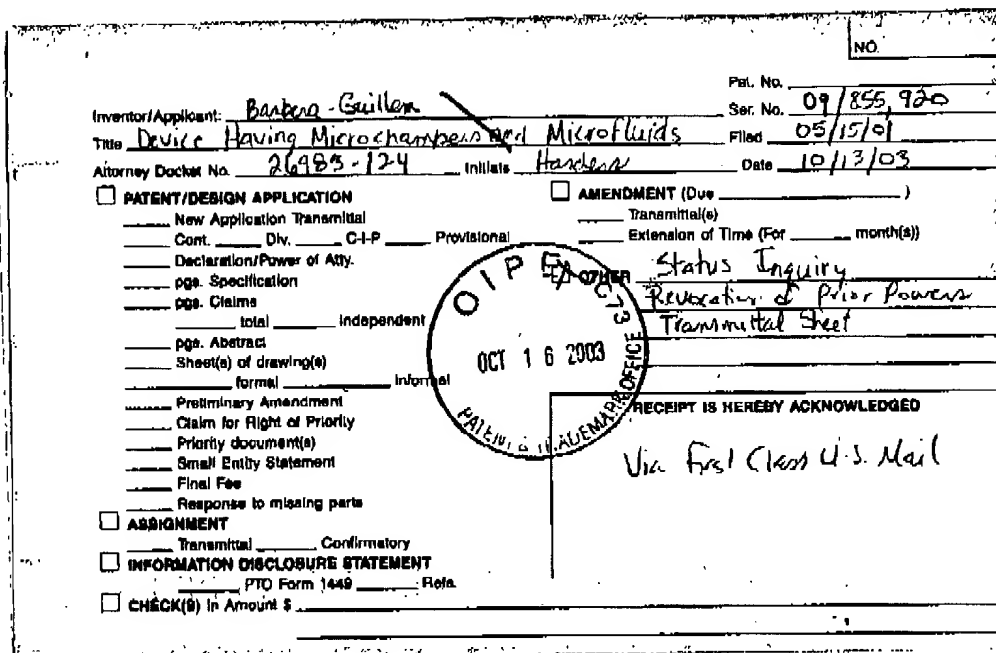 NO.
Pat. No.
Inventor/Applicant: Barbera-Guillem Ser. No. 09/855,920
Title Device Having Microchambers and Microfluids Filed 05/15/01
Attorney Docket No. 26983-124 Initials Date 10/13/03
PATENT/DESIGN APPLICATION
New Application Transmittal
Cont. Div. C-I-P Provisional
Declaration/Power of Atty.
pgs. Specification
pgs. Claims
total independent
pgs. Abstract
Sheet(s) of drawing(s)
formal informal
Preliminary Amendment
Claim for Right of Priority
Priority document(s)
Small Entity Statement
Final Fee
Response to missing parts
ASSIGNMENT
Transmittal Confirmatory
INFORMATION DISCLOSURE STATEMENT
PTO Form 1449 Refs.
CHECK(S) in Amount $
AMENDMENT (Due )
Transmittal(s)
Extension of Time (For month(s))
OTHER Status Inquiry
Revocation of Prior Powers
Transmittal Sheet
OIPE
OCT 16 2003
PATENT & TRADEMARK OFFICE
RECEIPT IS HEREBY ACKNOWLEDGED
Via First Class U.S. Mail